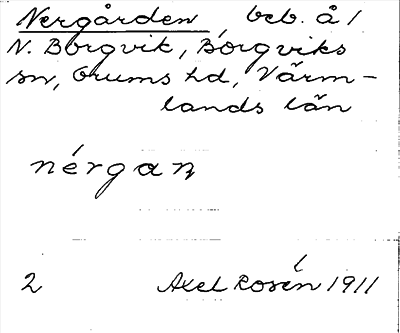 Nergården, beb. å /
N. Borgvik, Borgviks
sn, Grums hd, Värm-
lands län
nérgaṇ
2 Axel Rosén 1911